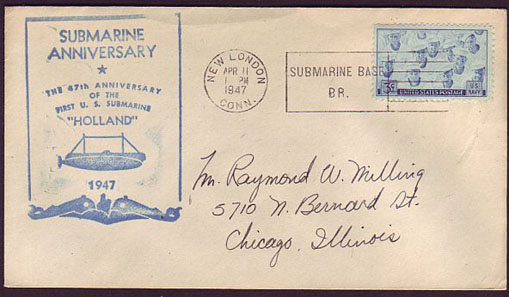 SUBMARINE
ANNIVERSARY
THE 47th ANNIVERSARY
OF THE
FIRST U.S. SUBMARINE
"HOLLAND"
1947
NEW LONDON
APR 11
1 PM
1947
CONN.
SUBMARINE BASE
BR.
3¢
UNITED STATES POSTAGE
U.S.
NAVY
Mr. Raymond W. Milling
5710 N. Bernard St.
Chicago, Illinois